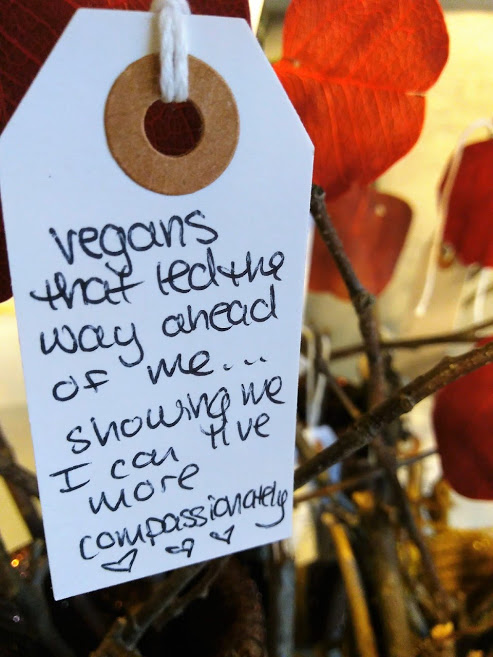 vegans
that led the
way ahead
of me...
showing me
I can live
more
compassionately